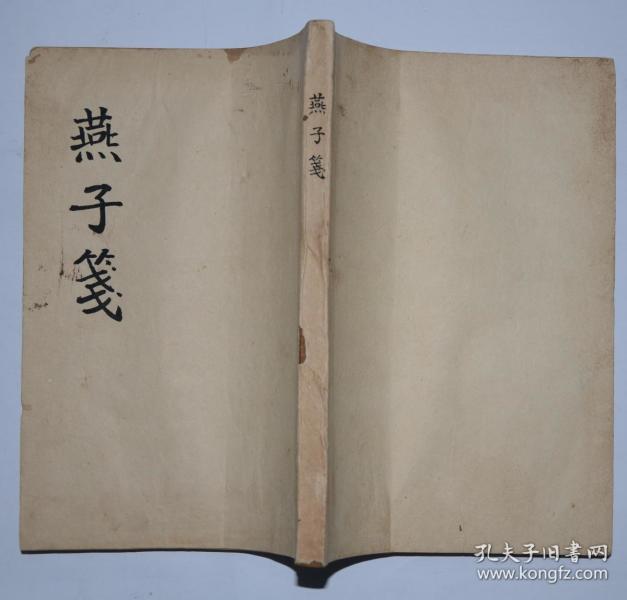 燕子箋
燕子箋
孔夫子旧書网
www.kongfz.com